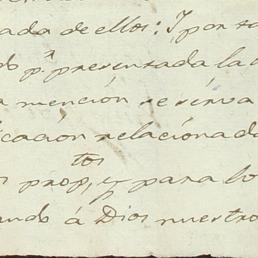 ada de ellos: Y por ta
pr presentada la
mención se sirva
icación relacionada
tos
prop, y para lo
ando á Dios nuestro